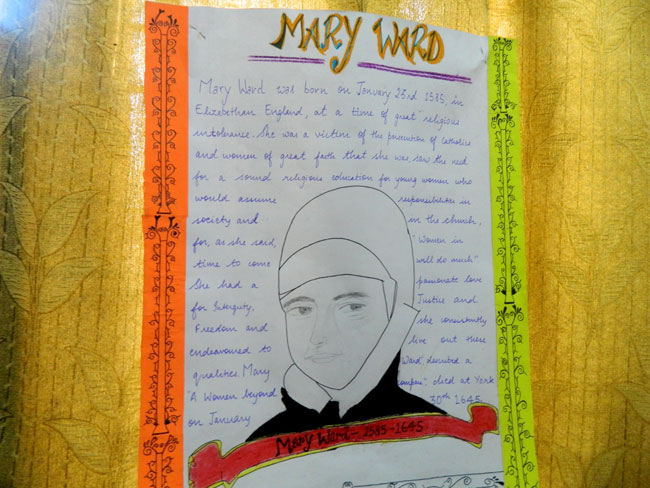 MARY WARD
Mary Ward was born on January 23rd 1585, in
Elizabethan England, at a time of great religious
intolerance. She was a victim of the persecution of Catholics
and women of great faith that she was saw the need
for a sound religious education for young women who
would assume responsibilities in
society and in the church,
for, as she said, "Women in
time to come will do much"
She had a passionate love
for Intergrity, Justice and
Freedom and she consistently
endeavoured to live out these
qualities. Mary Ward, described a
"A Women beyond compare", died at York
on January 30th 1645.
Mary Ward - 1585-1645